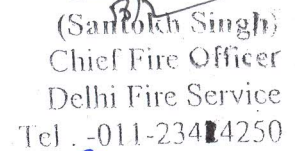 (Santokh Singh)
Chief Fire Officer
Delhi Fire Service
Tel . -011-23414250